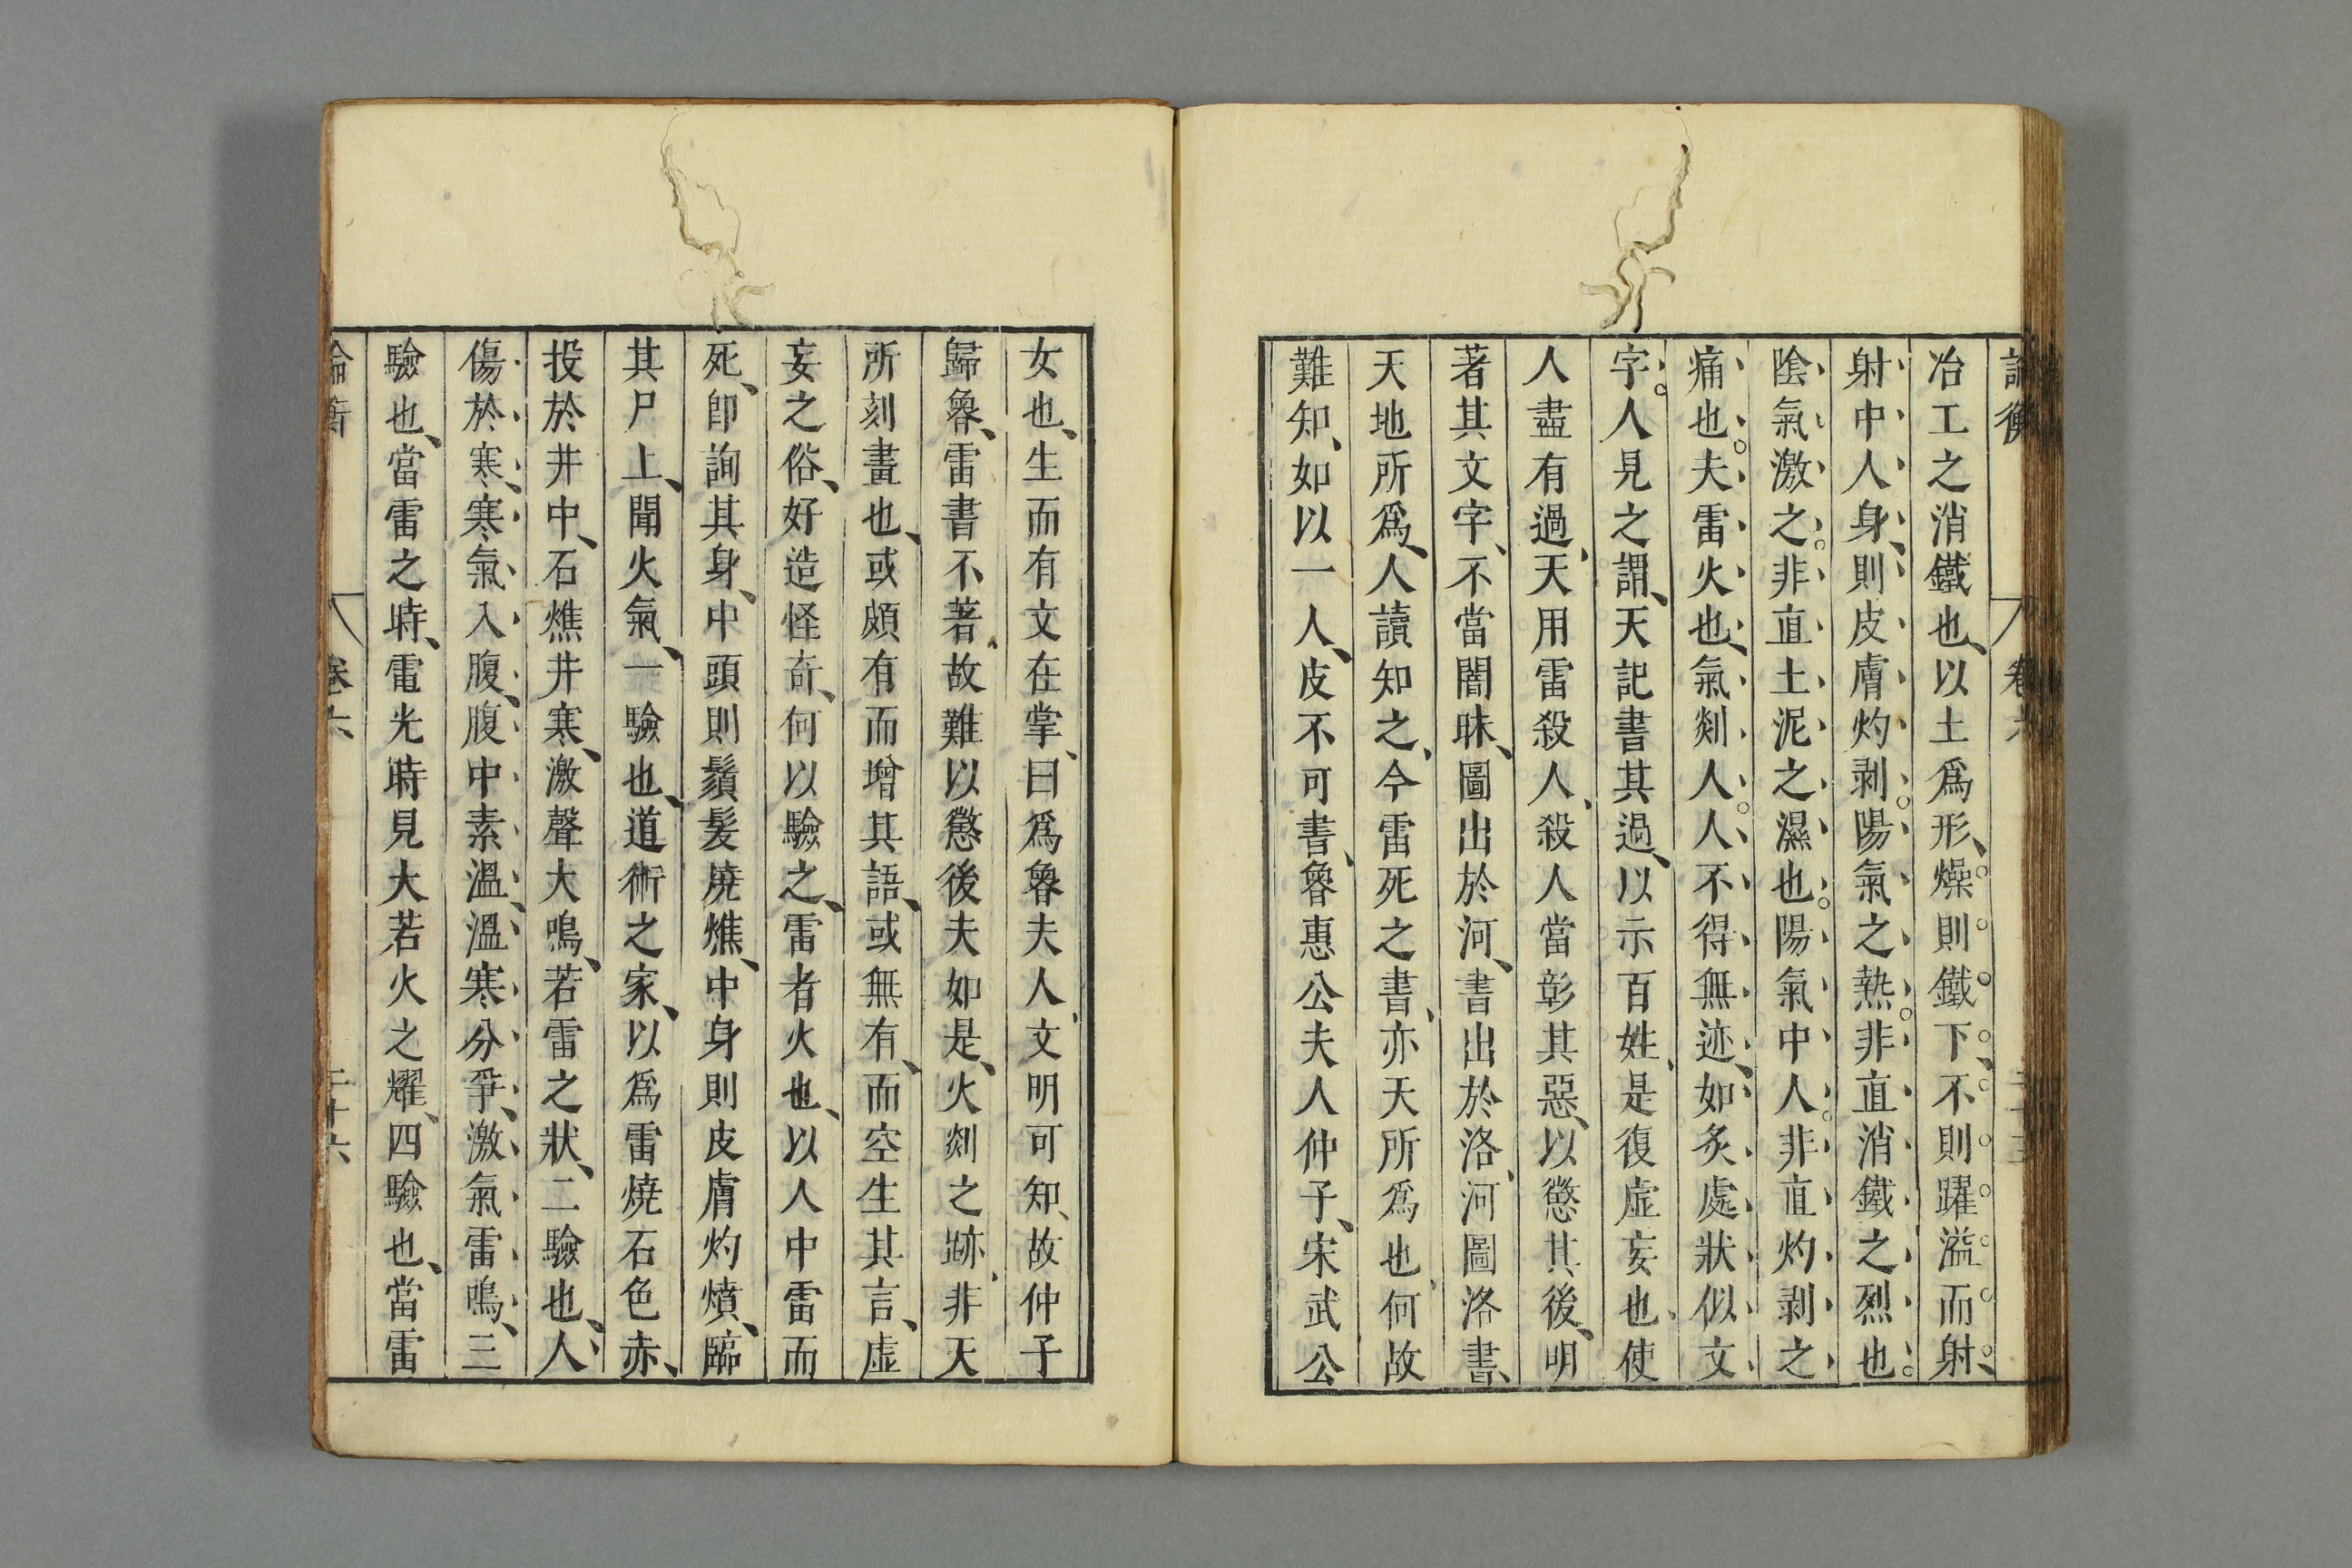 論衡 卷六
冶工之消鐵也、以土爲形、燥則鐵下、不則躍溢而射、
射中人身、則皮膚灼剥。陽氣之熱。非直消鐵之烈也。
陰氣激之。非直土泥之濕也。陽氣中人。非直灼剥之
痛也。夫雷火也、氣剡人。人不得無迹、如炙處狀似文
字。人見之謂、天記書其過、以示百姓、是復虛妄也、使
人盡有過、天用雷殺人、殺人當彰其惡、以懲其後、明
著其文字、不當闇昧、圖出於河、書出於洛、河圖洛書、
天地所爲、人讀知之、今雷死之書、亦天所爲也、何故
難知、如以一人、皮不可書、魯惠公夫人仲子、宋武公
女也、生而有文在掌、曰爲魯夫人、文明可知、故仲子
歸魯、雷書不著、故難以懲後夫如是、火剡之跡、非天
所刻畫也、或頗有而增其語、或無有、而空生其言、虛
妄之俗、好造怪奇、何以驗之、雷者火也、以人中雷而
死、卽詢其身、中頭則鬚髮燒燋、中身則皮膚灼燌、臨
其尸上、聞火氣、一驗也、道術之家、以爲雷燒石色赤、
投於井中、石燋井寒、激聲大鳴、若雷之狀、二驗也、人
傷於寒、寒氣入腹、腹中素溫、溫寒分爭、激氣雷鳴、三
驗也、當雷之時、電光時見大若火之耀、四驗也、當雷
論衡 卷六 二十六